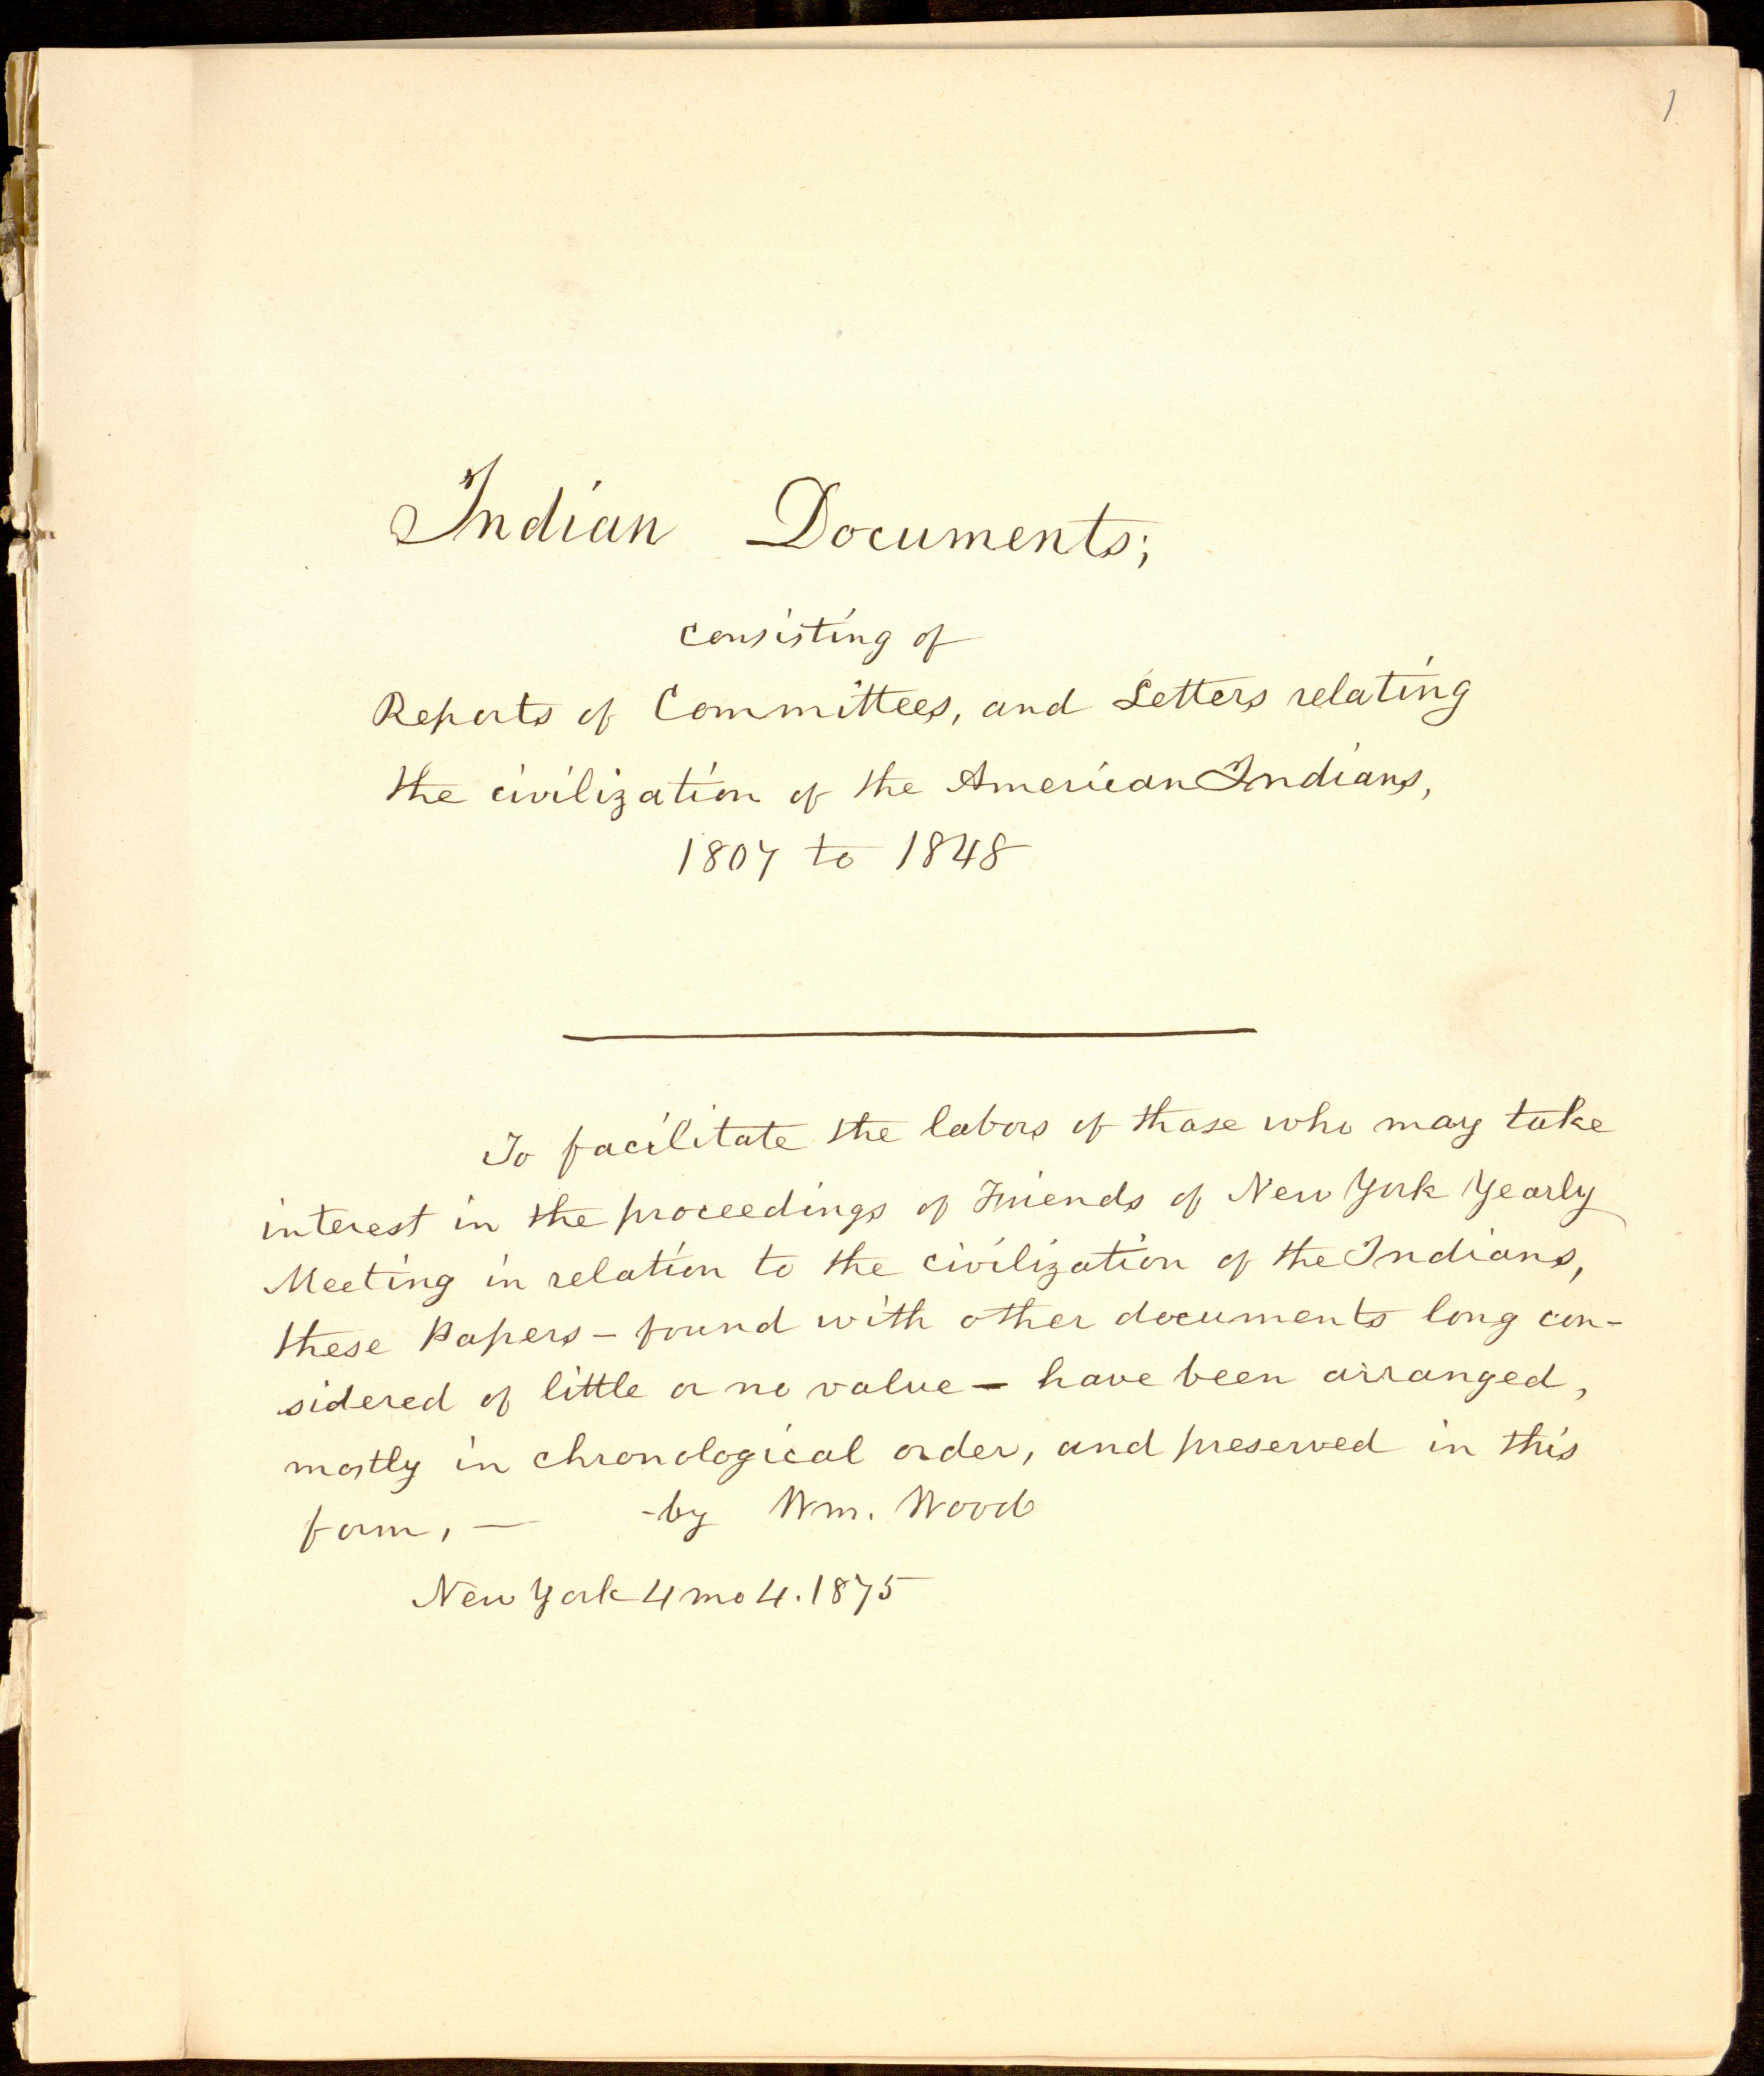 1
Indian Documents;
consisting of
Reports of Committees, and Letters relating
the civilization of the American Indians,
1807 to 1848
To facilitate the labors of those who may take
interest in the proceedings of Friends of New York Yearly
Meeting in relation to the civilization of the Indians,
these Papers – found with other documents long con-
sidered of little or no value – have been arranged,
mostly in chronological order, and preserved in this
form, — -by Wm. Wood
New York 4 mo 4. 1875